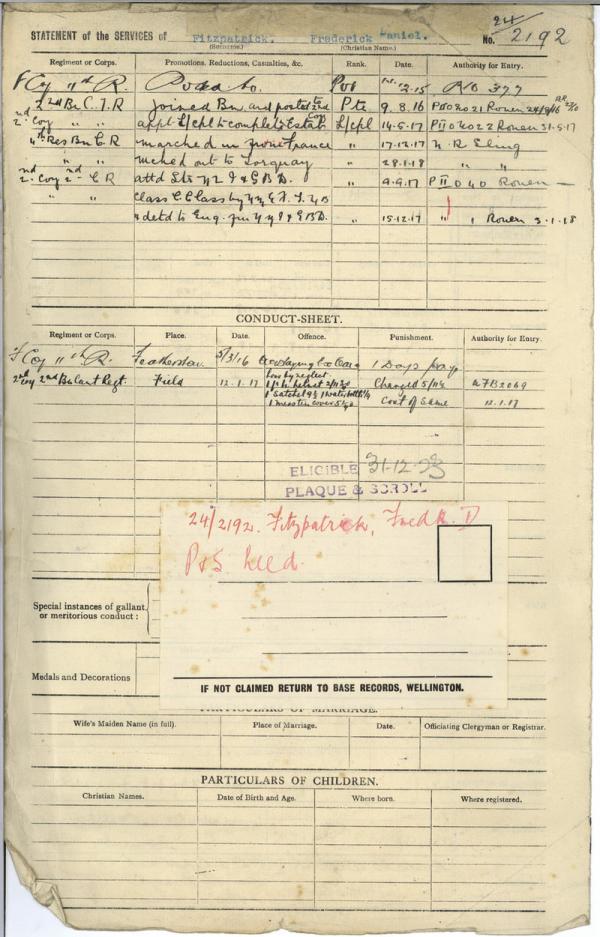 STATEMENT of the SERVICES of Fitzpatrick. Frederick Daniel. No. 24/2192
(Surname.) (Christian Name.)
Regiment or Corps. Promotions, Reductions, Casualties, &c. Rank. Date. Authority for Entry.
F Coy 11th R. Posted to. Pte 2.15 RO 377
2nd Bn C.I.R joined Bn and posted to 2nd Coy Pte 9.8.16 Rouen
2nd Coy " " appt L/cpl to complete Estab L/cpl 14-5-17 PII O 22 Rouen 31-5-17
4th Res Bn C.R marched in from France " 17-12-17 N.R Sling
" " marched out to Torquay " 28-1-18 " "
2nd Coy 2nd C R attd NZ I & G B D. " 9.9.17 PII O 40 Rouen —
" " Class C Class by
& detd to Eng. NZ I & G B D. " 15.12.17 " " Rouen 3.1.18
CONDUCT-SHEET.
Regiment or Corps. Place. Date. Offence. Punishment. Authority for Entry.
F Coy 11th R. Featherston. 5/3/16 Overstaying 1 Days pay
2nd Coy 2nd Bn Cant Regt. Field 12.1.17 Loss by neglect Charged 5/10½ AFB2069
1 helmet 2/11½
1 satchel 9½ 1 waterbottle
1 messtin cover 5½ Cost of same 12.1.17
ELIGIBLE 31-12-23
PLAQUE & SCROLL
24/2192. Fitzpatrick, Fredk. D
P & S Recd.
Special instances of gallant, or meritorious conduct :
Medals and Decorations
IF NOT CLAIMED RETURN TO BASE RECORDS, WELLINGTON.
PARTICULARS OF MARRIAGE.
Wife's Maiden Name (in full). Place of Marriage. Date. Officiating Clergyman or Registrar.
PARTICULARS OF CHILDREN.
Christian Names. Date of Birth and Age. Where born. Where registered.